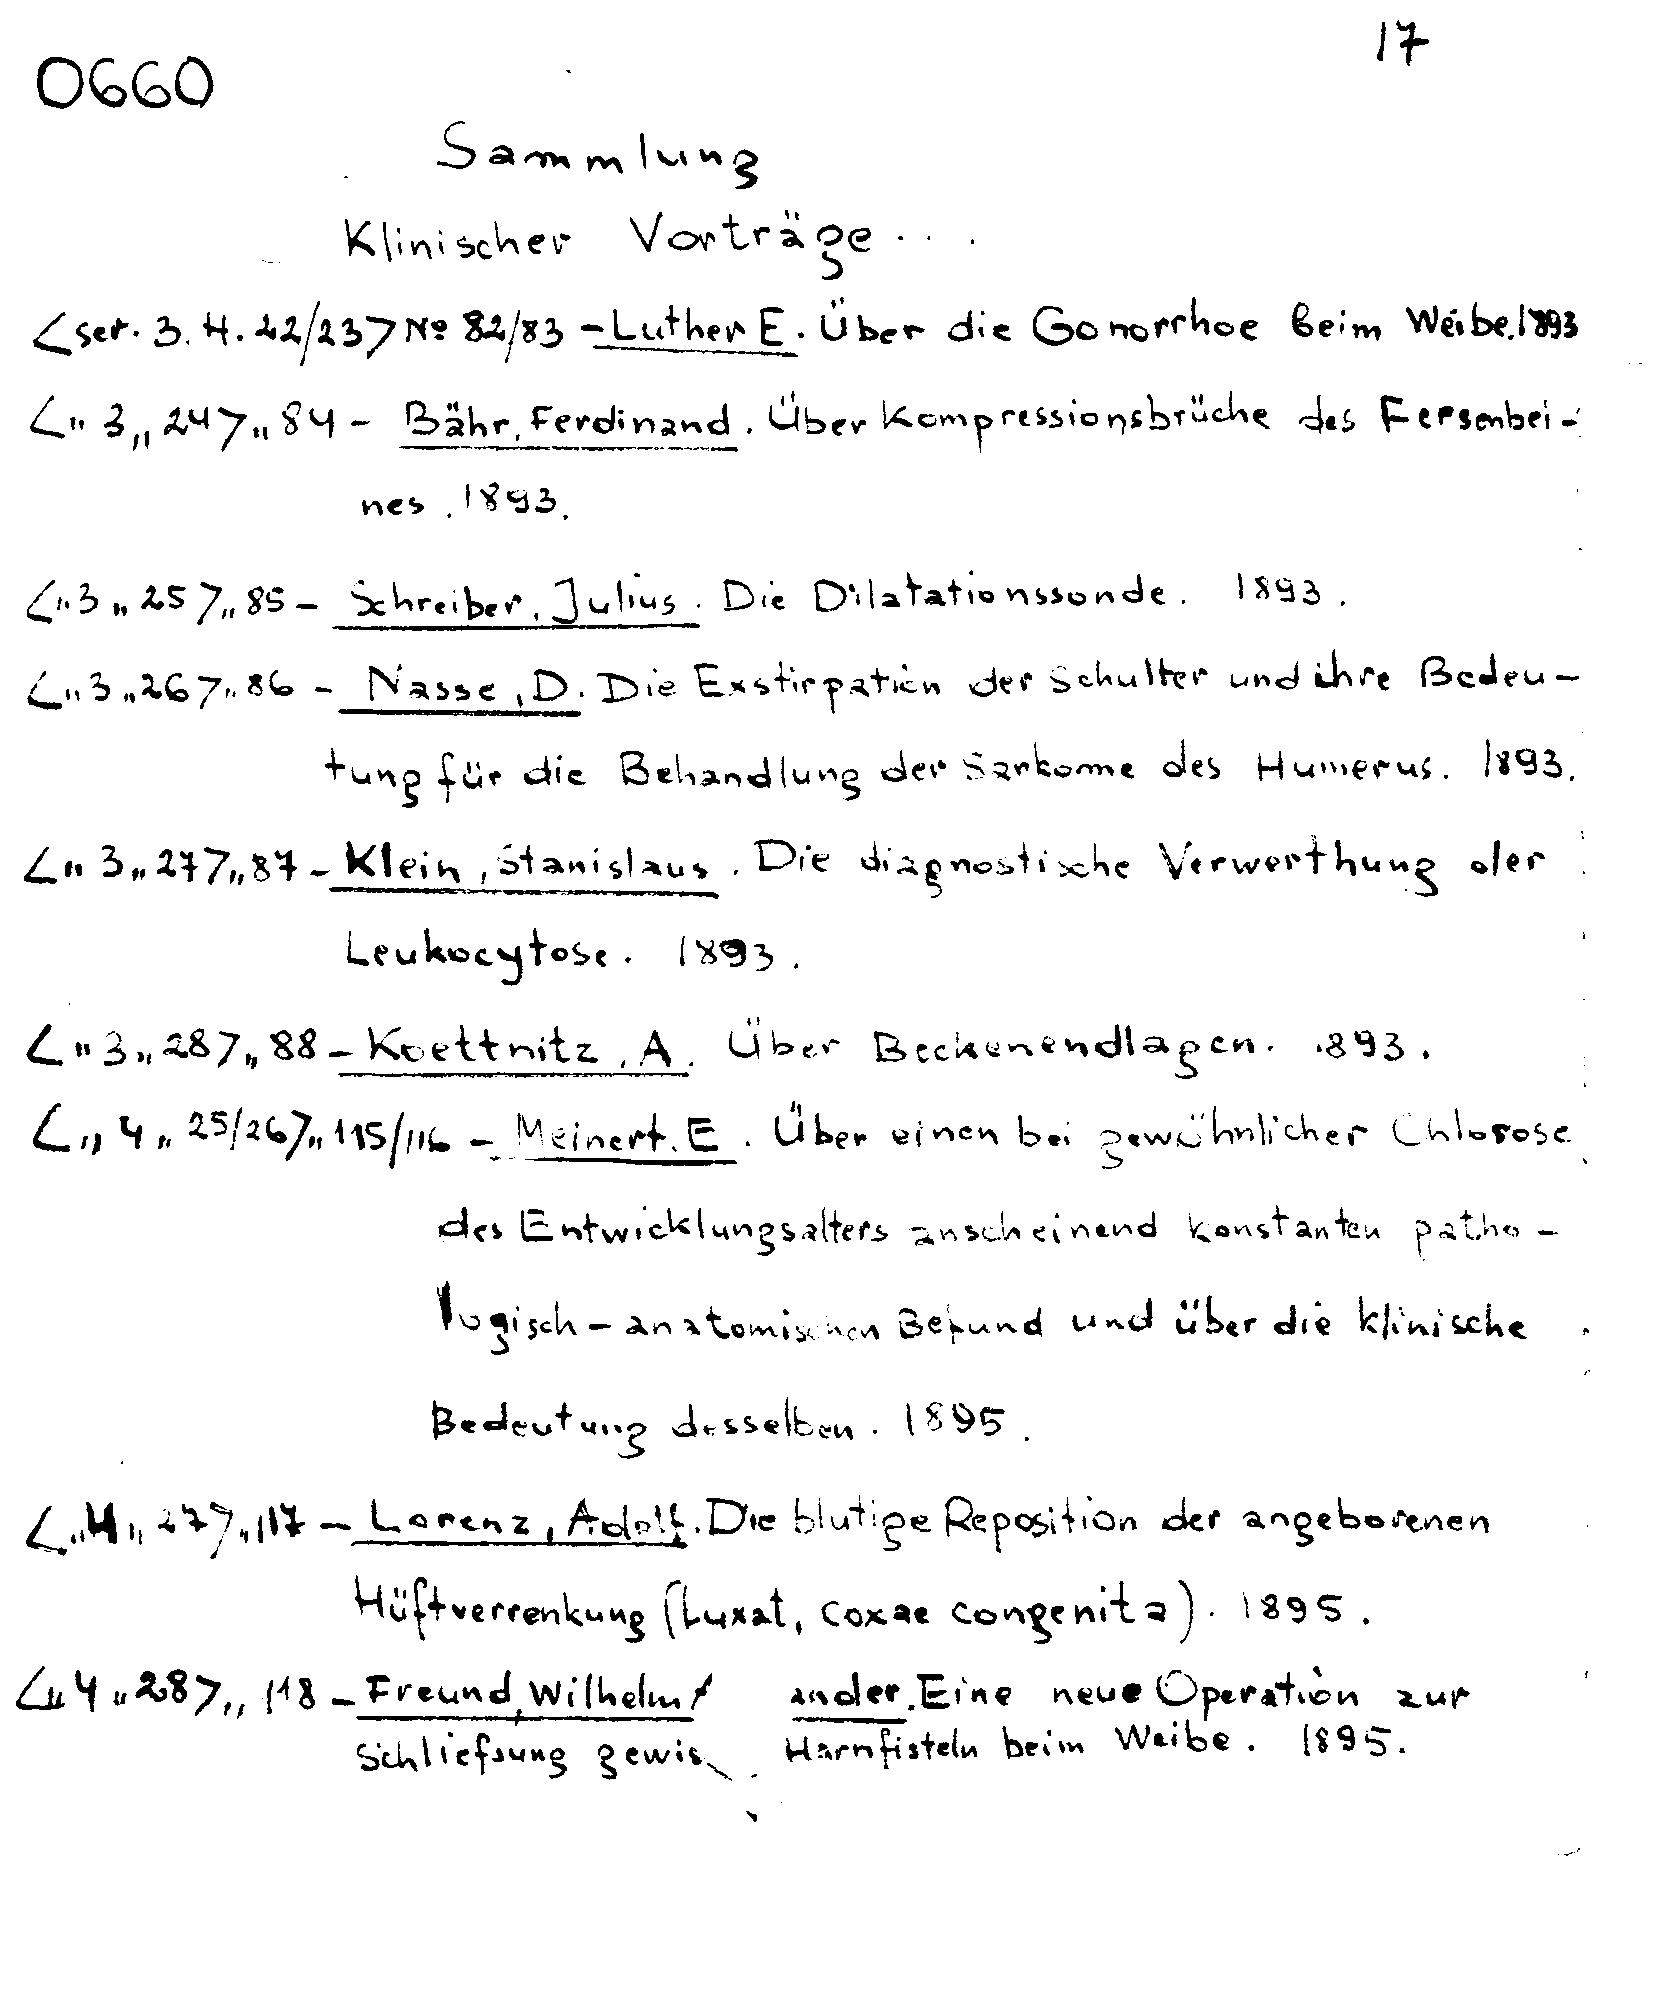 17
0660
Sammlung
Klinischer Vorträge . . .
<ser. 3. H. 22/23> No 82/83 – Luther E. Über die Gonorrhoe beim Weibe. 1893
<" 3 „ 24> „ 84 – Bähr, Ferdinand. Über Kompressionsbrüche des Fersenbei-
nes. 1893.
<„ 3 „ 25> „ 85 – Schreiber, Julius. Die Dilatationssonde. 1893.
<„ 3 „ 26> „ 86 – Nasse, D. Die Exstirpation der Schulter und ihre Bedeu-
tung für die Behandlung der Sarkome des Humerus. 1893.
<„ 3 „ 27> „ 87 – Klein, Stanislaus. Die diagnostische Verwerthung der
Leukocytose. 1893.
<„ 3 „ 28> „ 88 – Koettnitz, A. Über Beckenendlagen. 1893.
<„ 4 „ 25/26> „ 115/116 – Meinert. E. Über einen bei gewöhnlicher Chlorose
des Entwicklungsalters anscheinend konstanten patho-
logisch-anatomischen Befund und über die klinische
Bedeutung desselben. 1895.
<„ 4 „ 27> „ 117 – Lorenz, Adolf. Die blutige Reposition der angeborenen
Hüftverrenkung (Luxat, coxae congenita). 1895.
<„ 4 „ 28> „ 118 – Freund, Wilhelm ander. Eine neue Operation zur
Schliefsung gewis Harnfisteln beim Weibe. 1895.